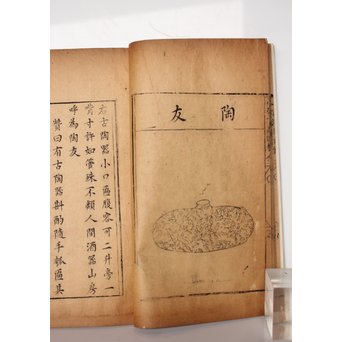 陶友
右古陶器小口匾腹容可二升旁一
寸許如管殊不類人間酒器山房
呼為陶友
贊曰有古陶器斟酌隨手瓠匾其